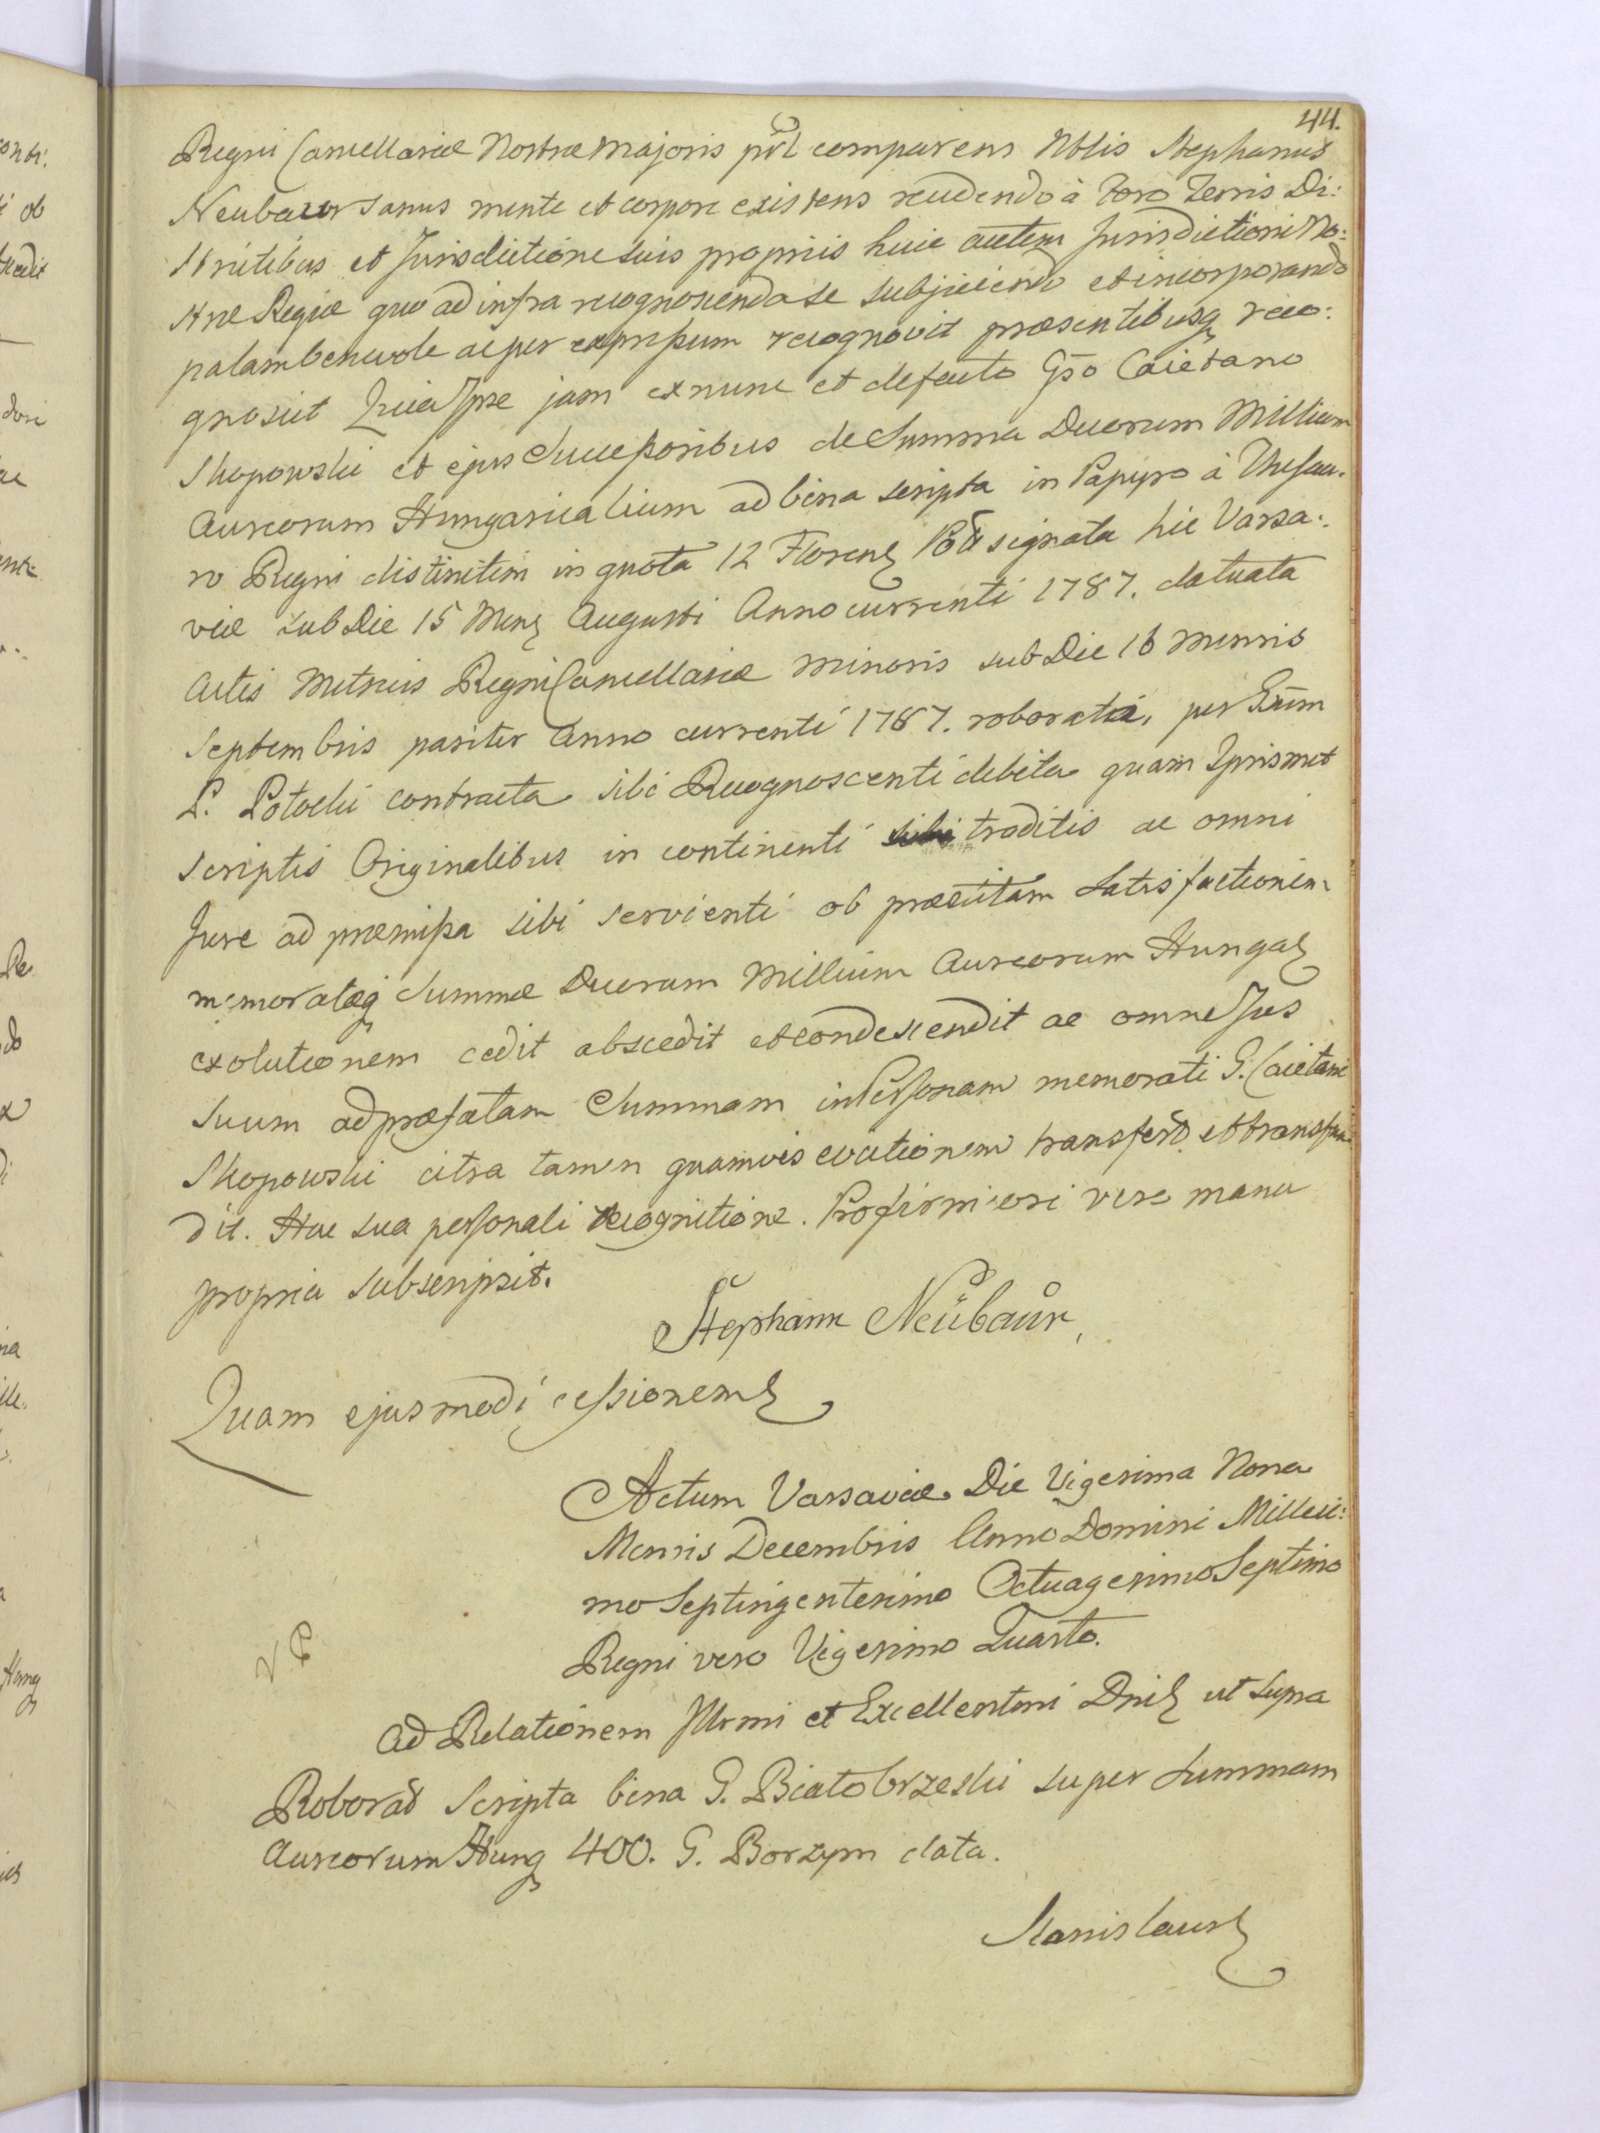 44.
Regni Cancellariæ Nostræ Majoris prl comparens Nblis Stephanus
Neubaur sanus mente et corpore existens recedendo à Foro Terris Di:
strictibus et Jurisdictione suis propriis huic autem Jurisdictioni No:
stræ Regiæ quo ad infra recognoscenda se subjiciendo et incorporando
palam benevole ac per expressum recognovit præsentibusq reco:
gnoscit Quia Ipse jam ex nunc et de facto Gso Caietano
Skopowski et ejus Successoribus de Summa Duorum Millium
Aureorum Hungaricalium ad bina scripta in Papyro à Thesau:
ro Regni distinctim in quota 12 Floren Pol signata hic Varsa:
viæ sub Die 15 Mens Augusti Anno currenti 1787. datuata
Actis Metrices Regni Cancellariæ Minoris sub Die 16 Mensis
Septembris pariter Anno currenti 1787. roborata, per Exum
P. Potocki contracta sibi Recognoscenti debita quam Ipsismet
scriptis Originalibus in continenti traditis ac omni
Jure ad præmissa sibi servienti ob præstitam satisfactionem
memoratæq Summæ Duorum Millium Aureorum Hungal
exolutionem cedit abscedit et condescendit ac omne Jus
suum ad præfatam Summam in Personam memorati G. Caietani
Skopowski citra tamen quamvis evictionem transfert et transfun
dit. Hac sua personali recognitione. Pro firmiori vero manu
propria subscripsit.
Stephann Neübaur,
Quam ejusmodi cessionem
Actum Varsaviæ Die Vigesima Nona
Mensis Decembris Anno Domini Millesi:
mo Septingentesimo Octuagesimo Septimo
Regni vero Vigesimo Quarto.
Ad Relationem Illrmi et Excellentmi Dni ut supra
Roborat Scripta bina G. Białobrzeski super summam
Aureorum Hung 400. G. Borzym data.
Stanislaus